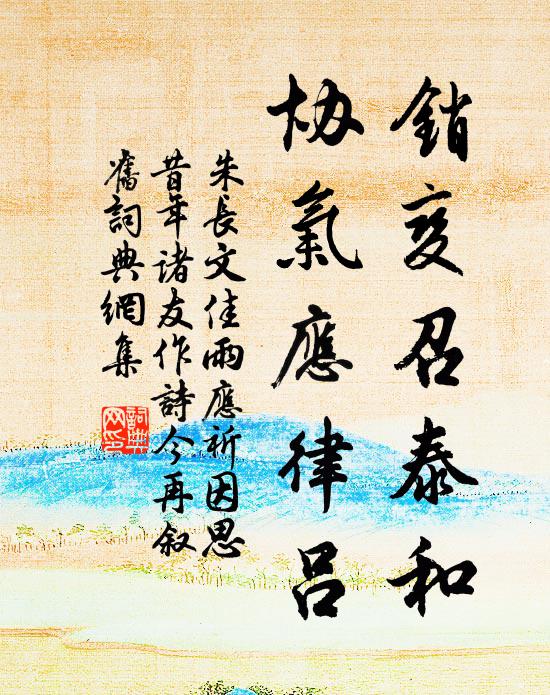 銷变召泰和
协氣應律呂
朱長文佳雨應祈因思
昔年諸友作詩今再叙
舊詞典網集
詞典
网印